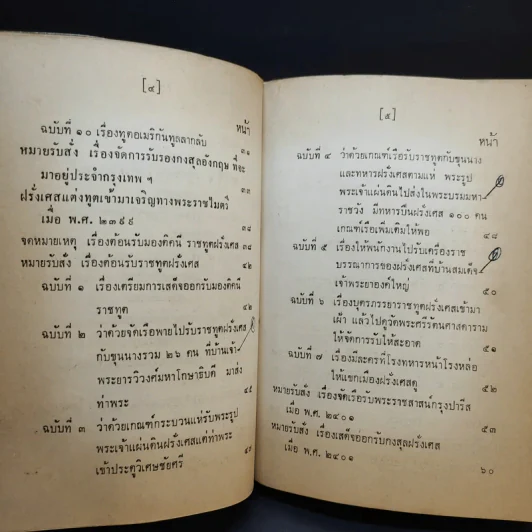 [๔]
หน้า
ฉบับที่ ๑๐ เรื่องทูตอเมริกันทูลลากลับ ๓๑
หมายรับสั่ง เรื่องจัดการรับรองกงสุลอังกฤษ ที่จะ
มาอยู่ประจำกรุงเทพ ฯ ๓๓
ฝรั่งเศสแต่งทูตเข้ามาเจริญทางพระราชไมตรี
เมื่อ พ.ศ. ๒๓๙๙ ๓๘
จดหมายเหตุ เรื่องต้อนรับมองติคนี ราชทูตฝรั่งเศส ๓๘
หมายรับสั่ง เรื่องต้อนรับราชทูตฝรั่งเศส ๔๒
ฉบับที่ ๑ เรื่องเตรียมการเสด็จออกรับมองติคนี
ราชทูต ๔๒
ฉบับที่ ๒ ว่าด้วยจัดเรือพายไปรับราชทูตฝรั่งเศส
กับขุนนางรวม ๒๖ คน ที่บ้านเจ้า
พระยารวิวงศ์มหาโกษาธิบดี มาส่ง
ท่าพระ ๔๕
ฉบับที่ ๓ ว่าด้วยเกณฑ์กระบวนแห่รับพระรูป
พระเจ้าแผ่นดินฝรั่งเศสแต่ท่าพระ
เข้าประตูวิเศษชัยศรี
[๕]
หน้า
ฉบับที่ ๔ ว่าด้วยเกณฑ์เรือรับราชทูตกับขุนนาง
และทหารฝรั่งเศสตามแห่ พระรูป
พระเจ้าแผ่นดินไปส่งในพระบรมมหา
ราชวัง มีทหารปืนฝรั่งเศส ๑๐๐ คน
เกณฑ์เรือเพิ่มเติมให้พอ ๔๘
ฉบับที่ ๕ เรื่องให้พนักงานไปรับเครื่องราช
บรรณาการของฝรั่งเศสที่บ้านสมเด็จ
เจ้าพระยาองค์ใหญ่ ๕๐
ฉบับที่ ๖ เรื่องบุตรภรรยาราชทูตฝรั่งเศสเข้ามา
เฝ้า แล้วไปดูวัดพระศรีรัตนศาสดาราม
ให้จัดการรับให้สะอาด ๕๑
ฉบับที่ ๗ เรื่องมีละครที่โรงทหารหน้าโรงหล่อ
ให้แขกเมืองฝรั่งเศสดู ๕๒
หมายรับสั่ง เรื่องจัดเรือรับพระราชสาสน์กรุงปารีส
เมื่อ พ.ศ. ๒๔๐๑ ๕๓
หมายรับสั่ง เรื่องเสด็จออกรับกงสุลฝรั่งเศส
เมื่อ พ.ศ. ๒๔๐๑ ๖๐